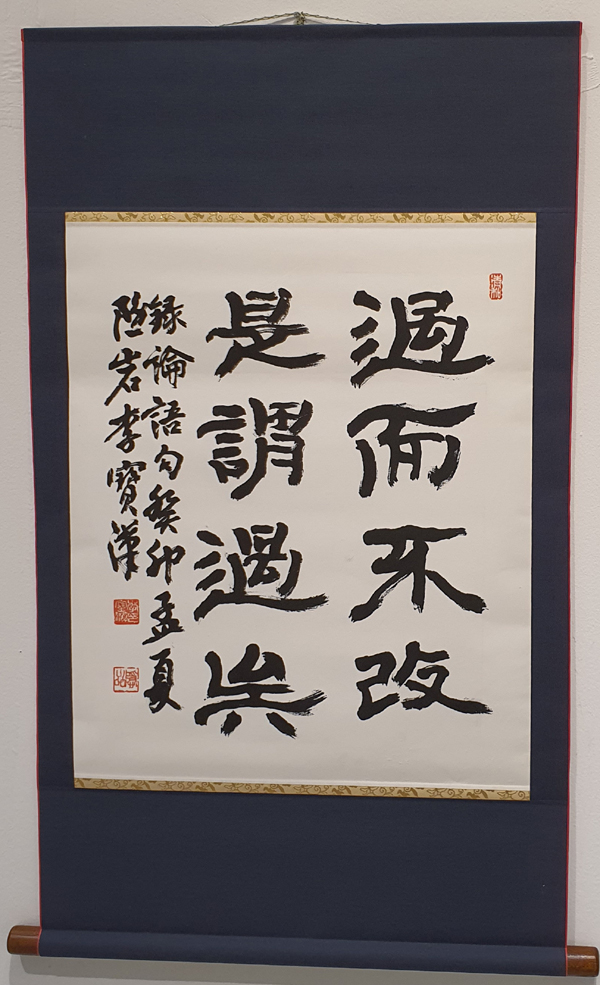 過而不改
是謂過矣
錄論語句癸卯孟夏
李寶漢